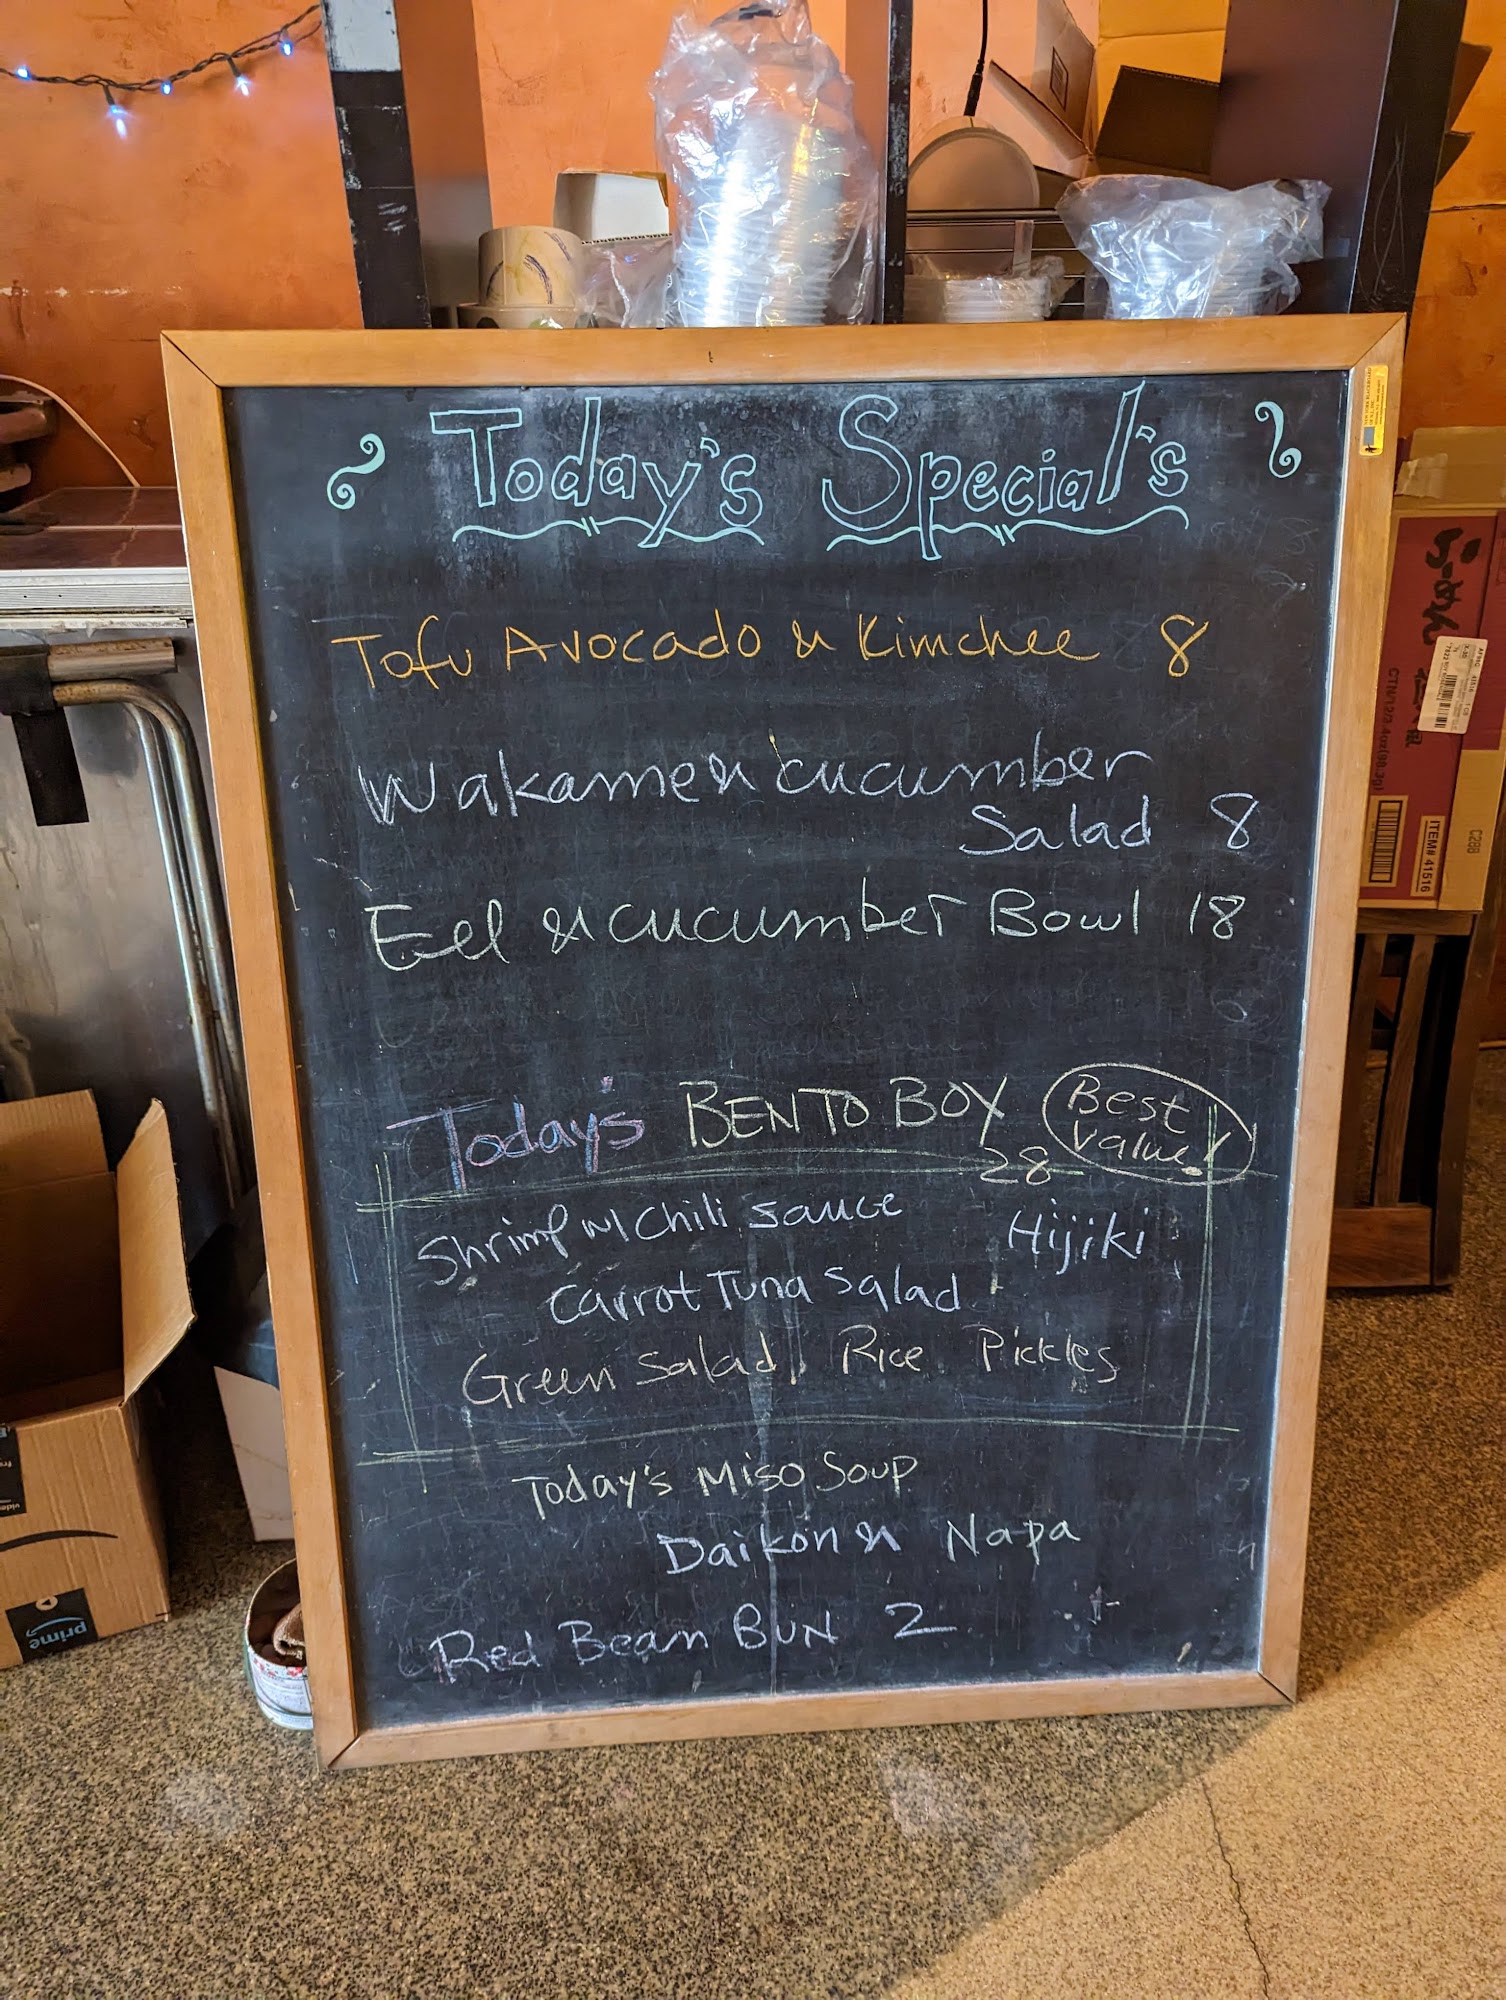 Today's Special's
Tofu Avocado & Kimchee 8
Wakame & cucumber
Salad 8
Eel & cucumber Bowl 18
Today's BENTO BOX
28
Best
Value!
Shrimp w/ Chili Sauce Hijiki
Carrot Tuna Salad
Green Salad, Rice Pickles
Today's Miso Soup
Daikon & Napa
Red Bean BUN 2
CTN/12/3.4oz(98.3g)
ITEM# 41516
C28B
prime